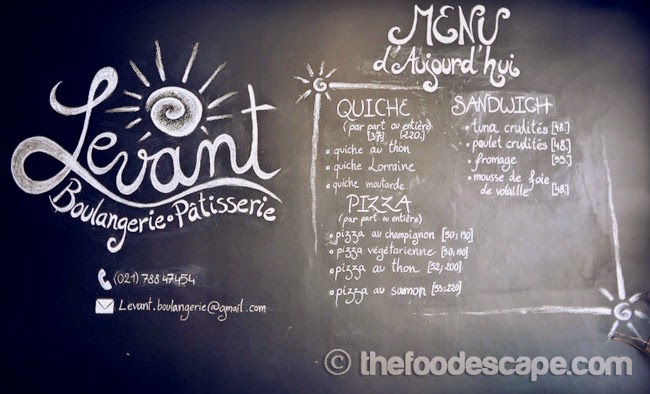 Levant
Boulangerie • Pâtisserie
(021) 788 47454
Levant.boulangerie@gmail.com
MENU
d'Aujourd'hui
QUICHE
(par part ou entière)
[37] [220]
• quiche au thon
• quiche Lorraine
• quiche moutarde
PIZZA
(par part ou entière)
• pizza au champignon [50;190]
• pizza végétarienne [50;190]
• pizza au thon [52;200]
• pizza au saumon [55;220]
SANDWICH
• tuna crudités [48.]
• poulet crudités [48.]
• fromage [55.]
• mousse de foie
de volaille [48.]
© thefoodescape.com